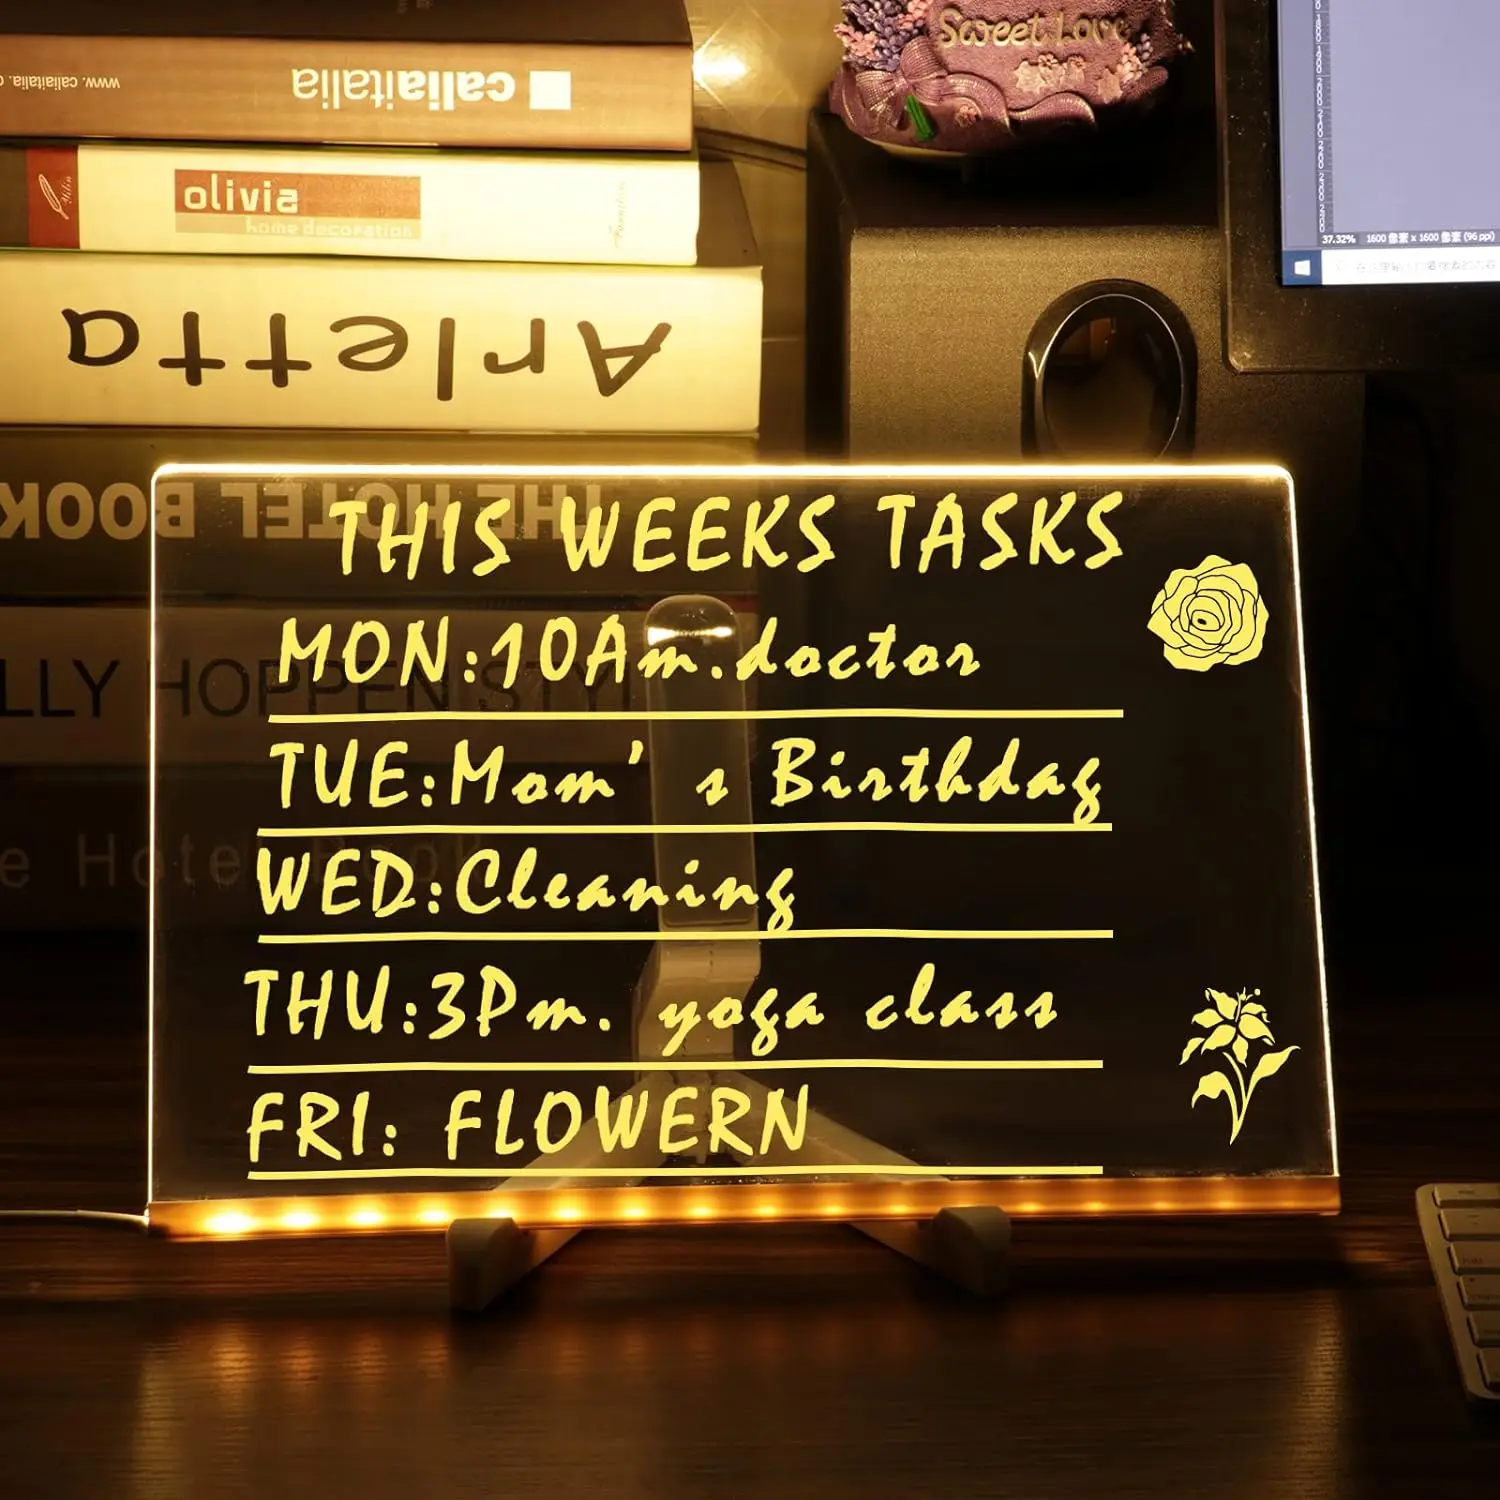 Sweet Love
www.caliaitalia.c
caliaitalia
olivia
home decoration
Arletta
THE HOTEL BOOK
37.32% 1600 像素 x 1600 像素 (96 ppi)
THIS WEEKS TASKS
MON:10Am.doctor
LLY HOPPEN STYL
TUE:Mom's Birthday
WED:Cleaning
e Hotel Book
THU:3Pm. yoga class
FRI: FLOWERN